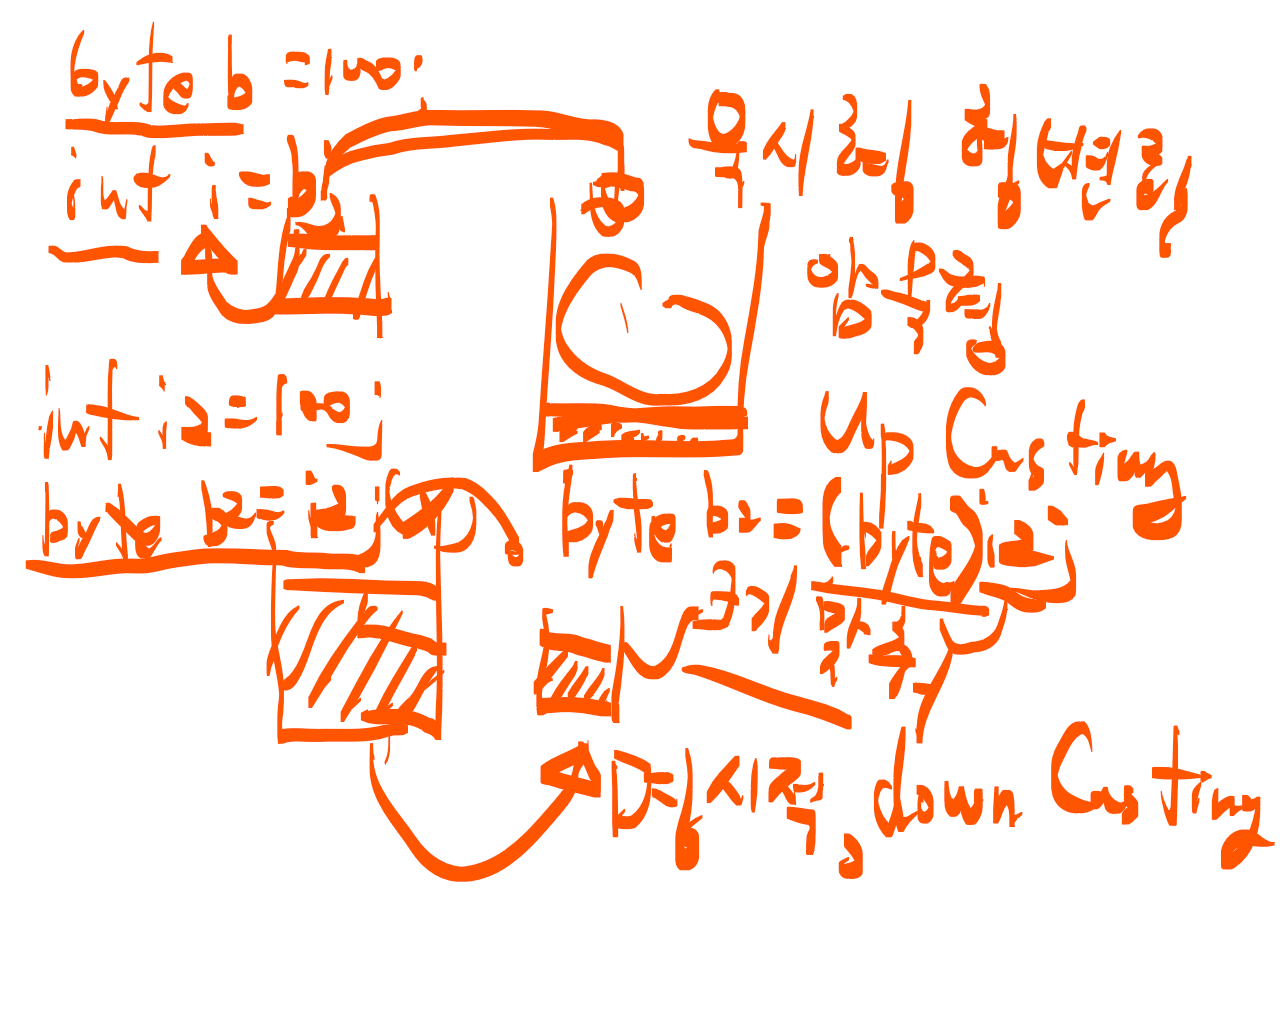 byte b = 100;
int i = b;
묵시적 형변환
up Casting
int i2 = 100;
byte b2 = i2;
byte b2 = (byte)i2;
크기
명시적, down Casting